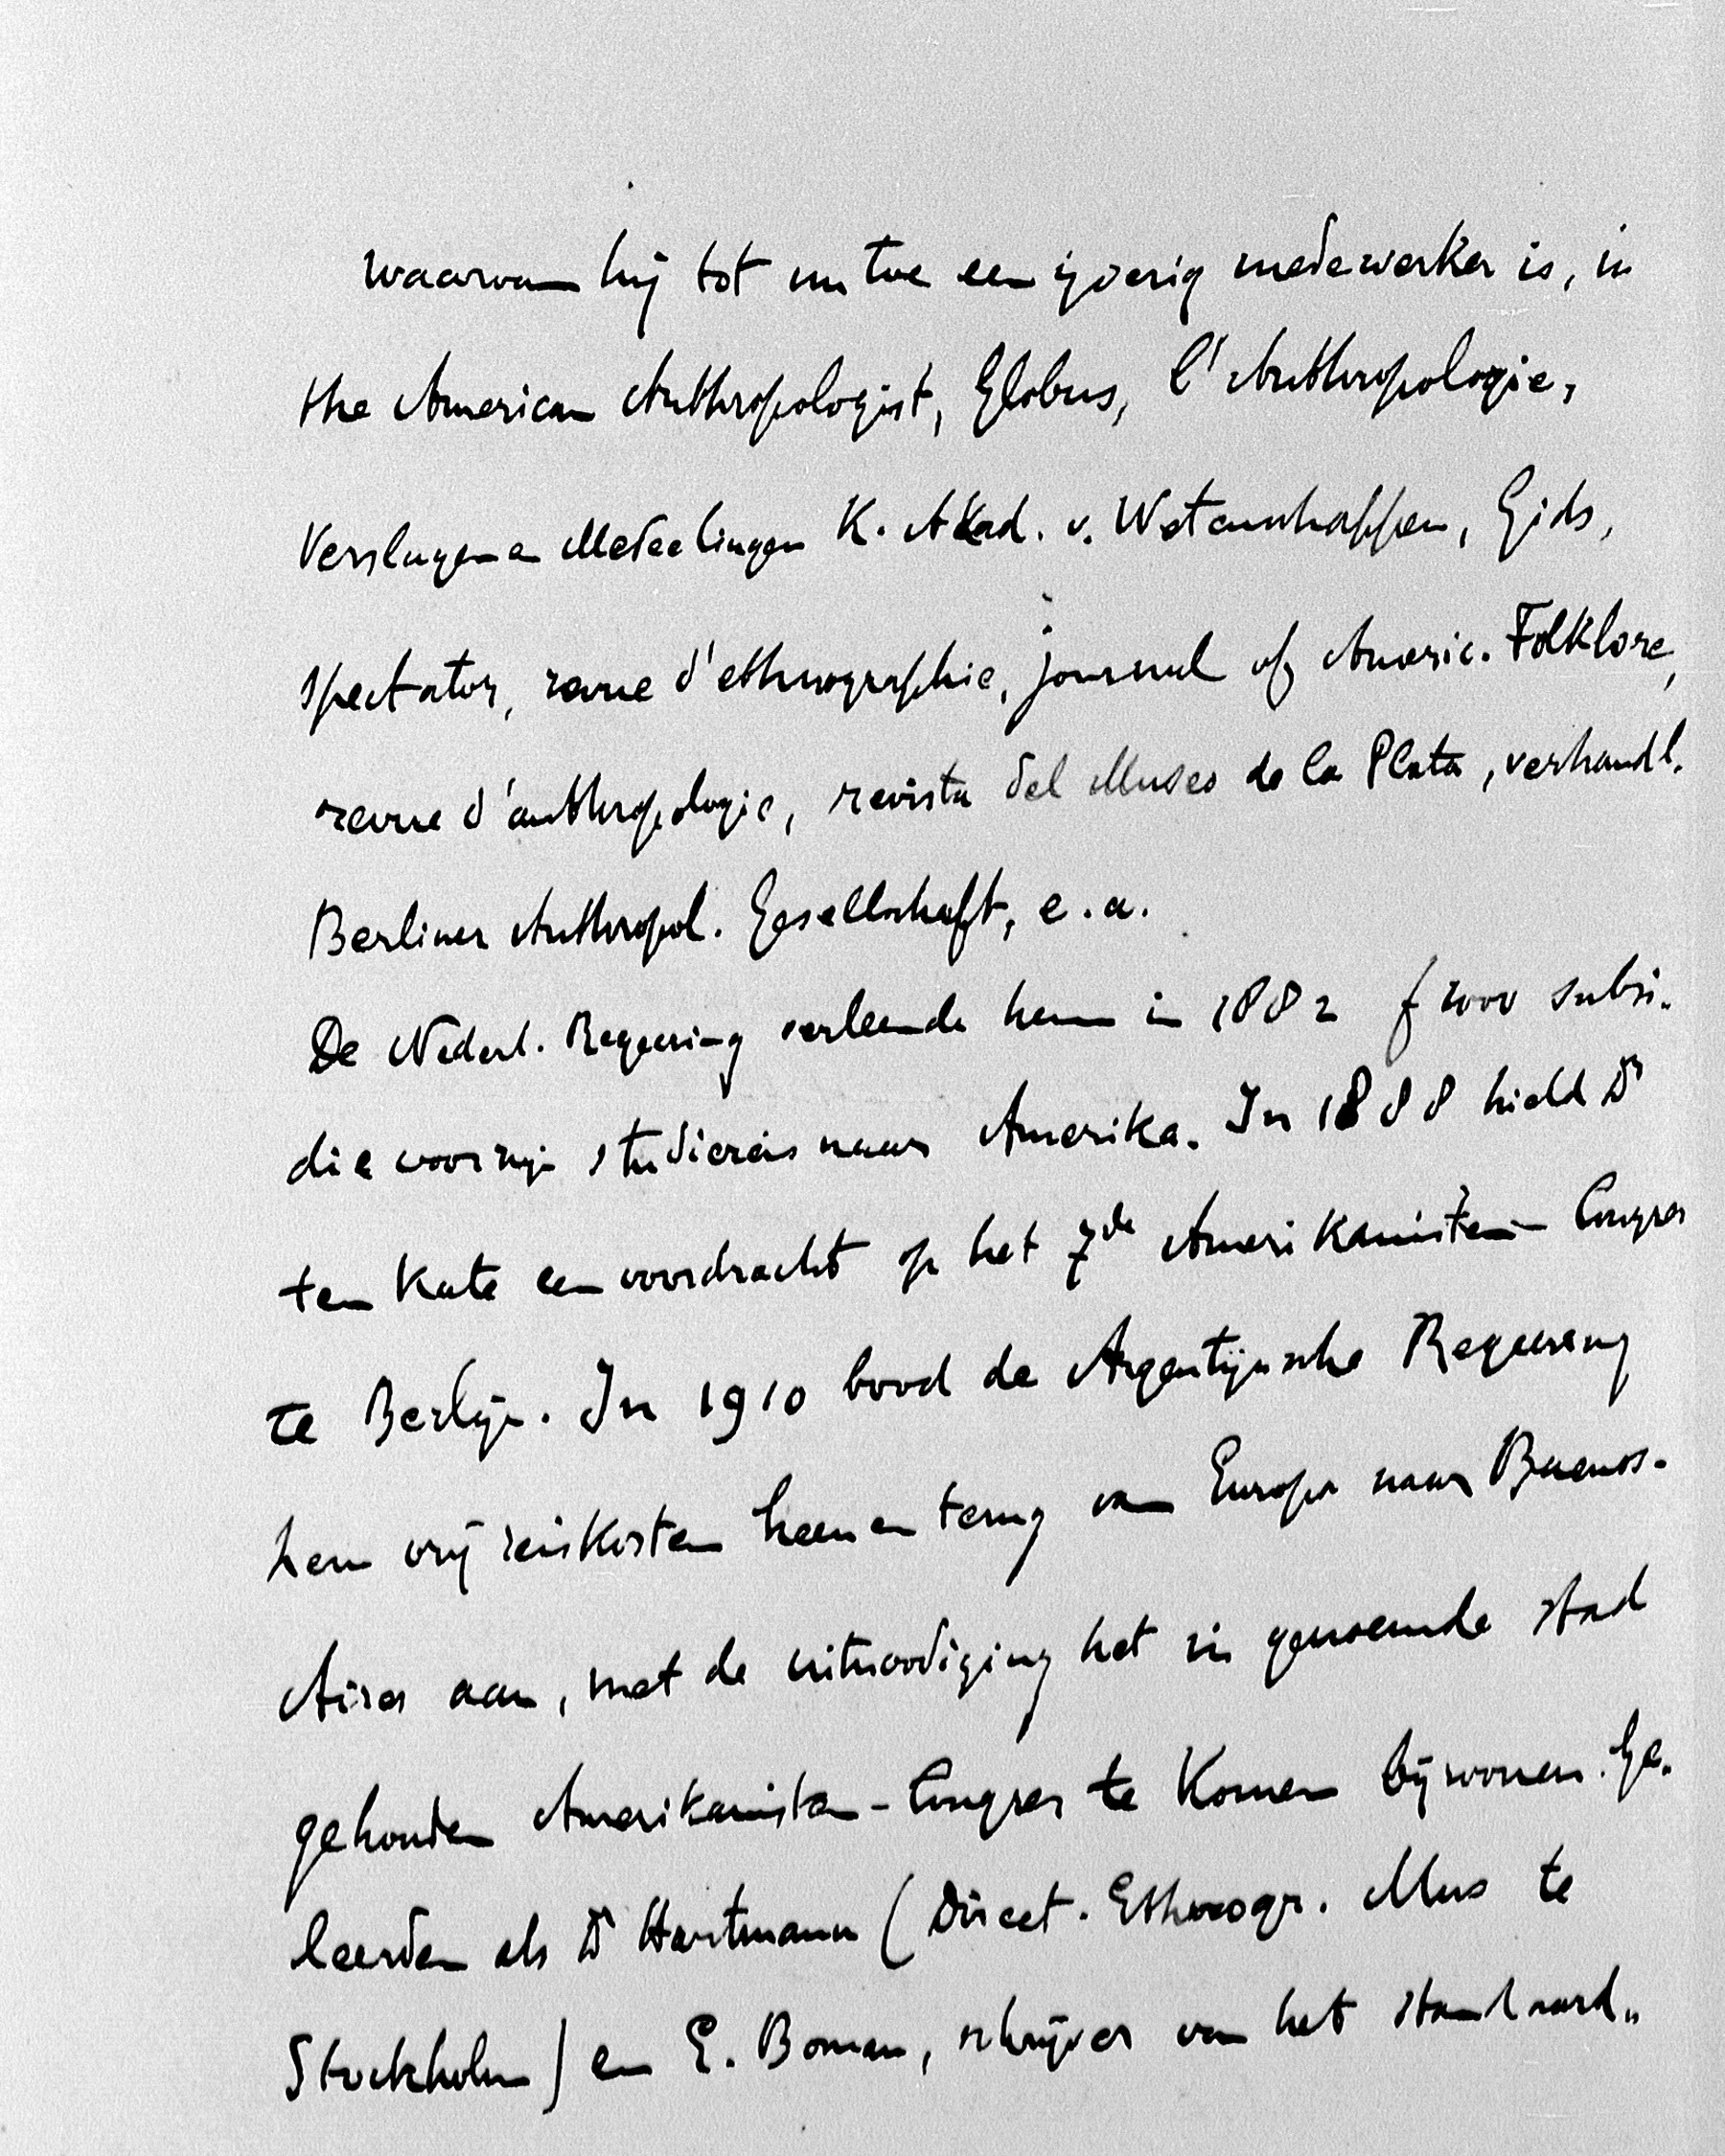 waarvan hij tot nu toe een ijverig medewerker is, in
the American Anthropologist, Globus, l'Anthropologie,
Verslagen en Mededeelingen K. Akad. v. Wetenschappen, Gids,
Spectator, revue d'ethnographie, journal of Americ. Folklore,
revue d'anthropologie, revista del Museo de la Plata, verhandl.
Berliner Anthropol. Gesellschaft, e.a.
De Nederl. Regeering verleende hem in 1882 f 2000 subsi-
die voor zijn studiereis naar Amerika. In 1888 hield Dr
ten Kate een voordracht op het 7de Amerikanisten-Congres
te Berlijn. In 1910 bood de Argentijnsche Regeering
hem vrij reiskosten heen en terug van Europa naar Buenos-
Aires aan, met de uitnoodiging het in genoemde stad
gehouden Amerikanisten-Congres te komen bijwonen. Ge-
leerden als Dr Hartmann (Direct. Ethnogr. Mus te
Stockholm) en E. Boman, schrijver van het standaard-